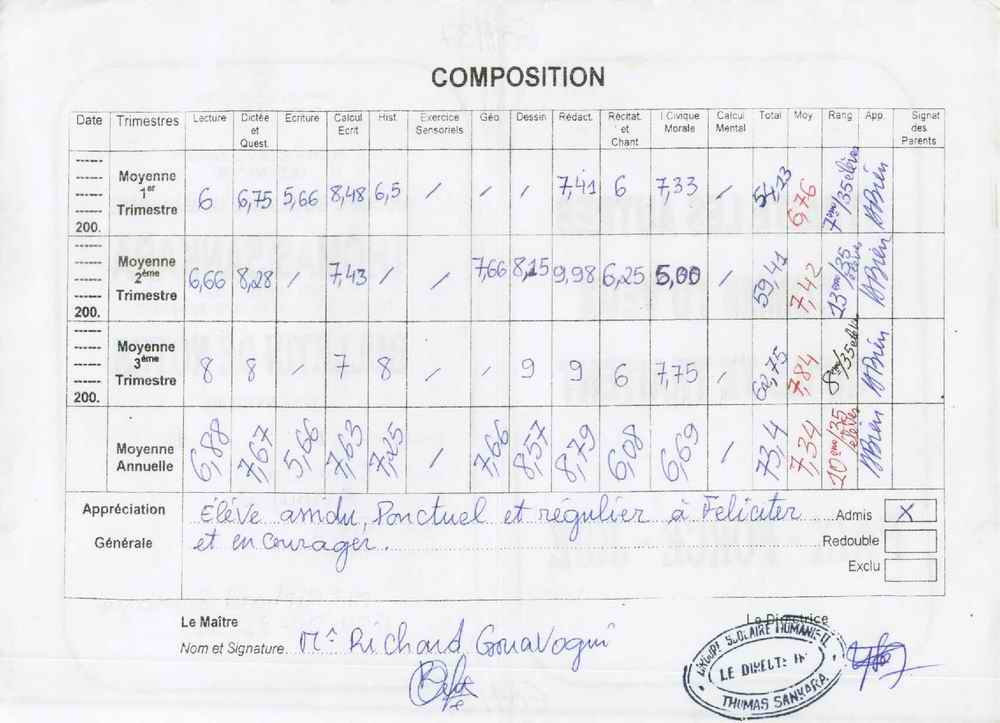 COMPOSITION
Date Trimestres Lecture Dictée et Quest. Ecriture Calcul Ecrit Hist. Exercice Sensoriels Géo. Dessin Rédact. Récitat. et Chant I Civique Morale Calcul Mental Total Moy Rang App. Signat des Parents
------ ------ ------ 200. Moyenne 1er Trimestre 6 6,75 5,66 8,48 6,5 / / / 7,41 6 7,33 / 54,13 6,76 7ème/35 élèves A Bien
------ ------ ------ 200. Moyenne 2ème Trimestre 6,66 8,28 / 7,43 / 7,66 8,15 9,98 6,25 5,00 / 59,41 7,42 13ème/35 élèves A Bien
------ ------ ------ 200. Moyenne 3ème Trimestre 8 8 / 7 8 / / 9 9 6 7,75 / 62,75 7,84 8ème/35 élèves A Bien
Moyenne Annuelle 6,88 7,67 5,66 7,63 7,25 / 7,66 8,57 8,79 6,08 6,69 / 73,4 7,34 10ème/35 élèves A Bien
Appréciation Générale
Elève assidu, Ponctuel et régulier à Féliciter
et encourager.
Admis X
Redouble
Exclu
Le Maître
Nom et Signature Mr Richard Gouavogui
La Directrice
GROUPE SCOLAIRE HUMANISTE
LE DIRECTEUR
THOMAS SANKARA